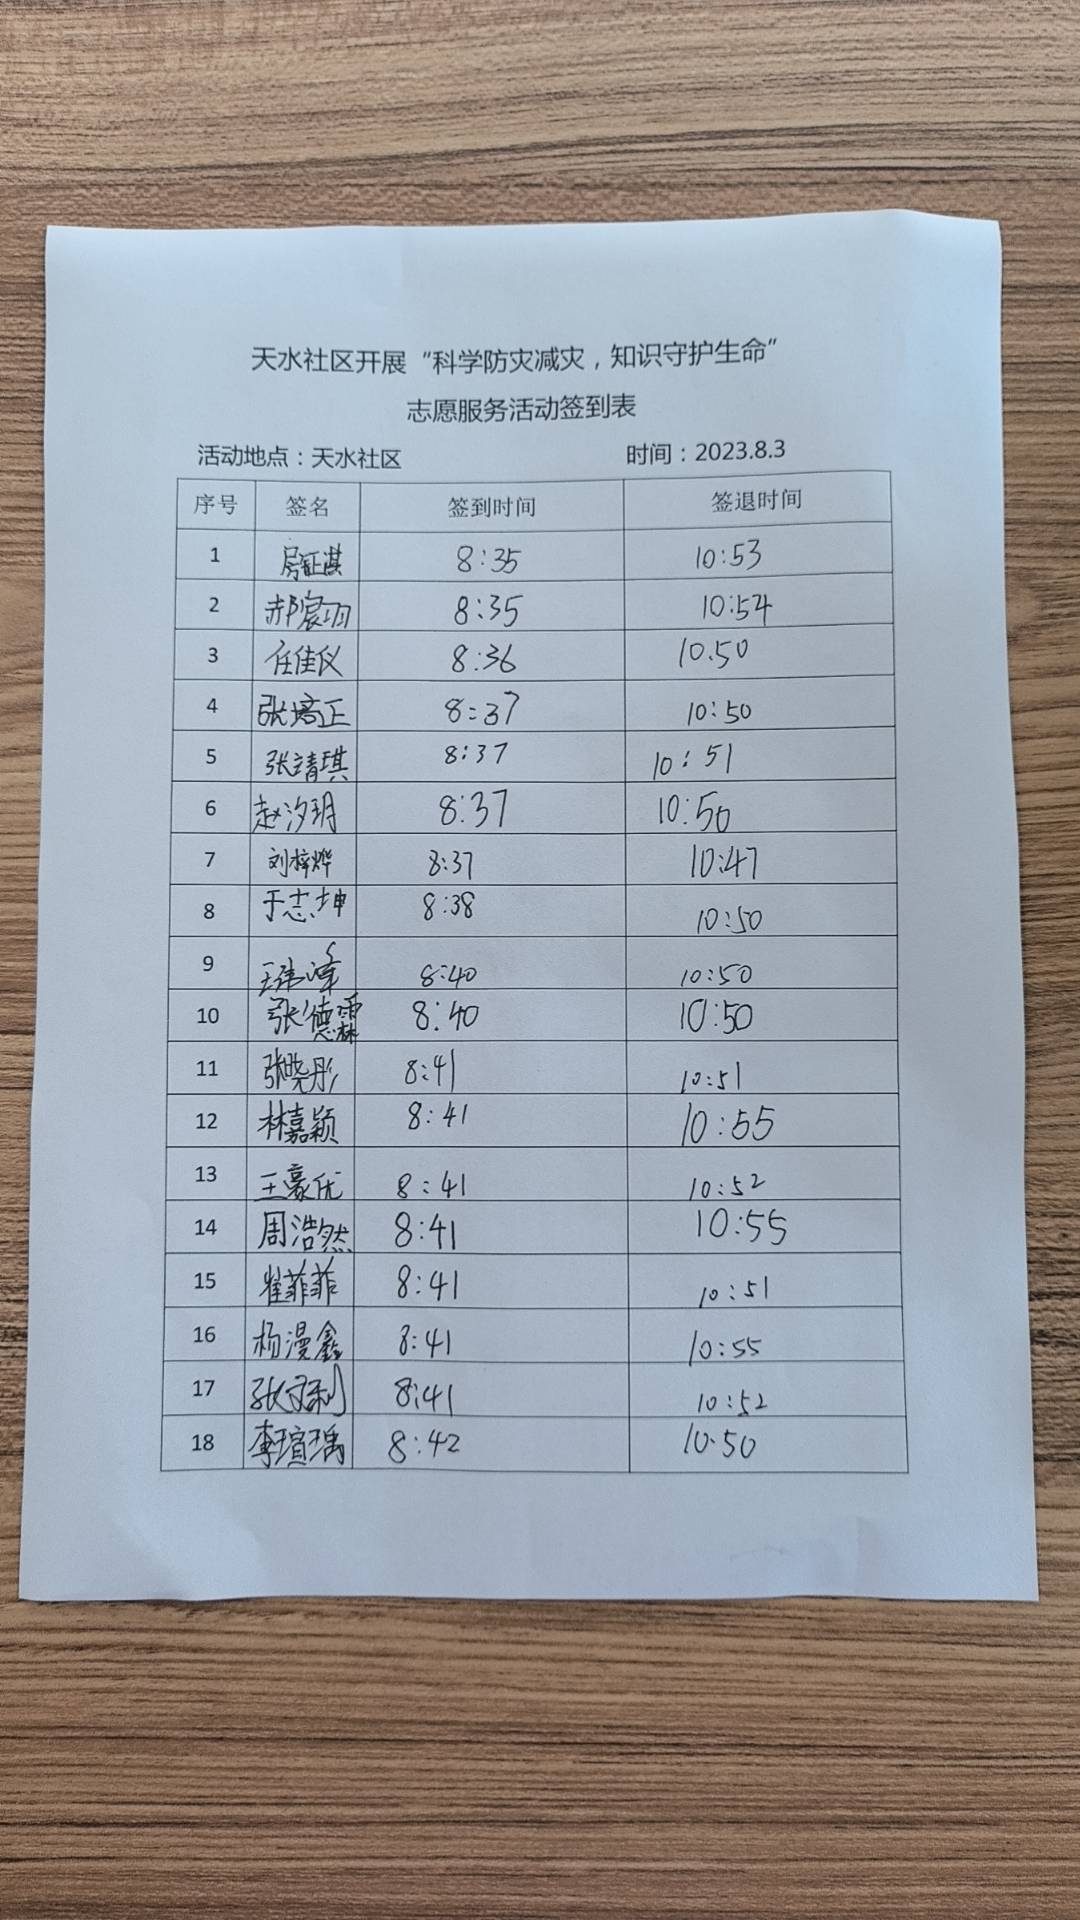 天水社区开展“科学防灾减灾，知识守护生命”
志愿服务活动签到表
活动地点：天水社区 时间：2023.8.3
序号 签名 签到时间 签退时间
1 8:35 10:53
2 8:35 10:54
3 任佳仪 8:36 10.50
4 张培正 8:37 10:50
5 张靖琪 8:37 10:51
6 赵汐玥 8:37 10:50
7 刘梓烨 8:37 10:47
8 于志坤 8:38 10:50
9 8:40 10:50
10 张德霖 8:40 10:50
11 张晓彤 8:41 10:51
12 林嘉颖 8:41 10:55
13 王豪优 8:41 10:52
14 周浩然 8:41 10:55
15 崔菲菲 8:41 10:51
16 杨漫鑫 8:41 10:55
17 8:41 10:52
18 李瑄瑀 8:42 10.50